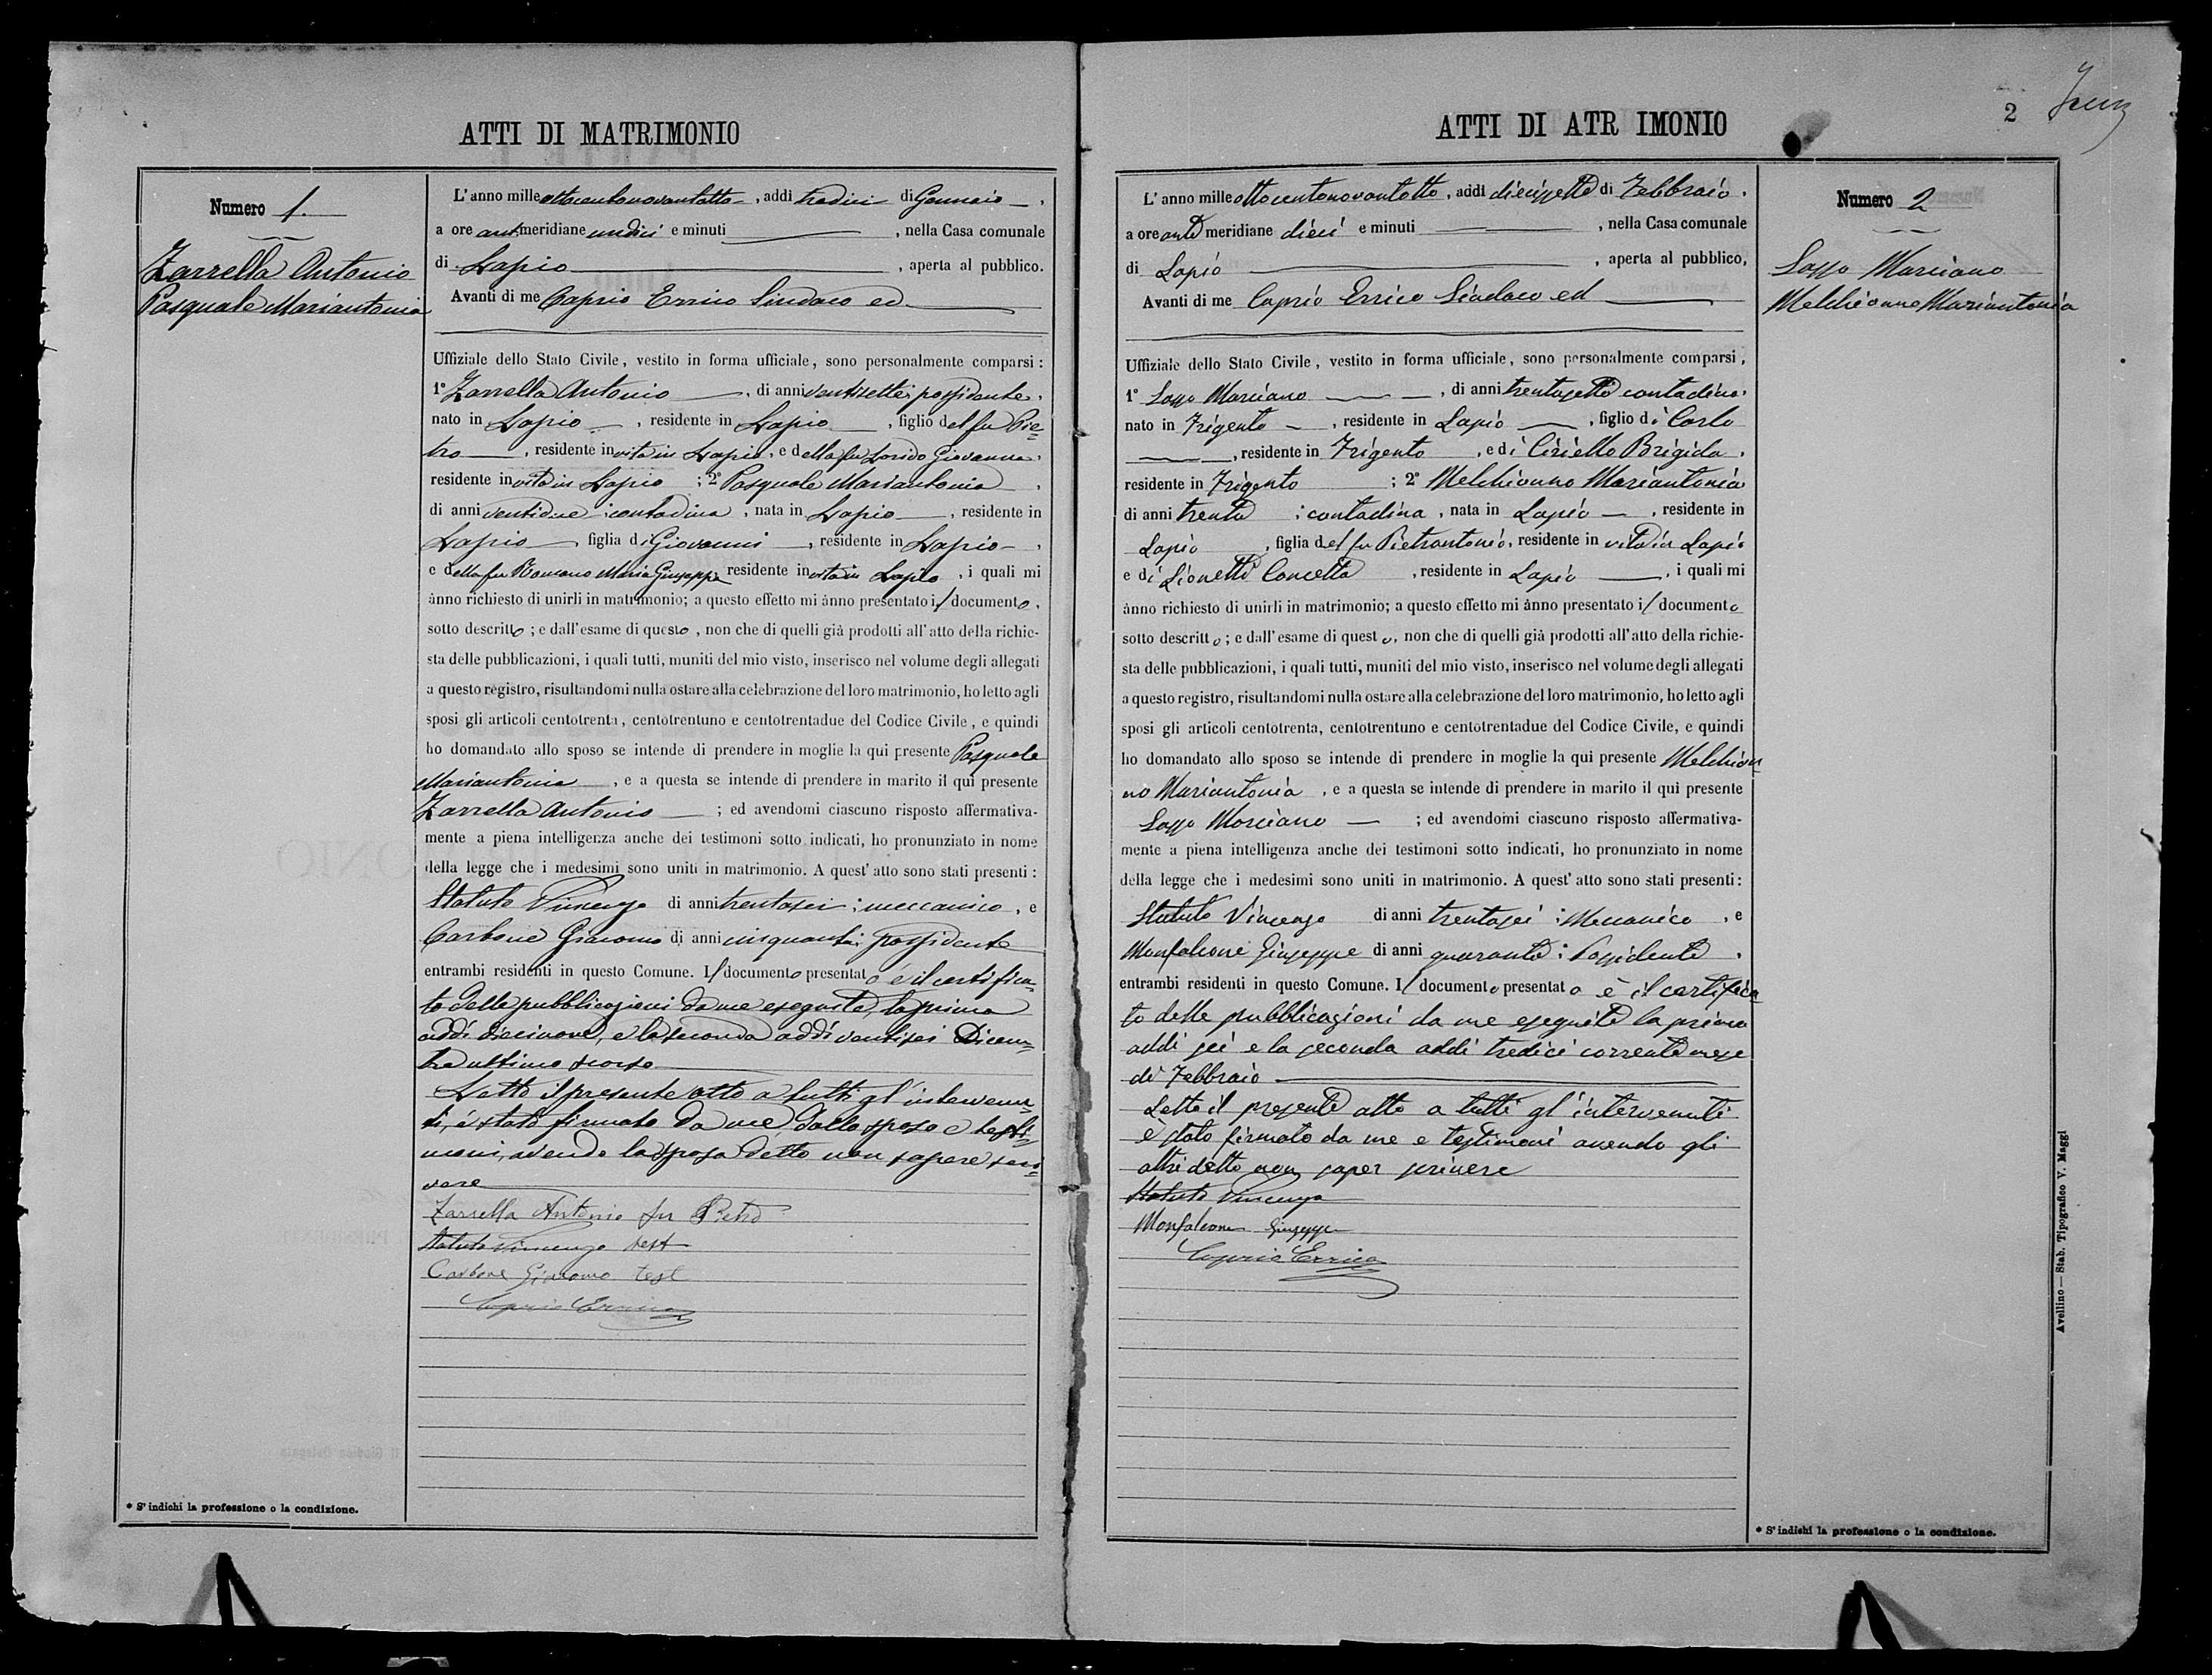 ATTI DI MATRIMONIO
Numero 1.
Zarrella Antonio
Pasquale Mariantonia
L'anno mille ottocentonovantotto, addi tredici di Gennaio,
a ore antimeridiane undici e minuti, nella Casa comunale
di Lapio, aperta al pubblico.
Avanti di me Caprio Errico Sindaco ed
Uffiziale dello Stato Civile, vestito in forma ufficiale, sono personalmente comparsi:
1° Zarrella Antonio, di anni ventisette; possidente,
nato in Lapio, residente in Lapio, figlio del fu Pie-
tro, residente in vita in Lapio, e della fu Giovanna,
residente in vita in Lapio; 2° Pasquale Mariantonia,
di anni ventidue; contadina, nata in Lapio, residente in
Lapio, figlia di Giovanni, residente in Lapio,
e della fu Romano Maria Giuseppa residente in vita in Lapio, i quali mi
ànno richiesto di unirli in matrimonio; a questo effetto mi ànno presentato il documento,
sotto descritto; e dall'esame di questo, non che di quelli già prodotti all'atto della richie-
sta delle pubblicazioni, i quali tutti, muniti del mio visto, inserisco nel volume degli allegati
a questo registro, risultandomi nulla ostare alla celebrazione del loro matrimonio, ho letto agli
sposi gli articoli centotrenta, centotrentuno e centotrentadue del Codice Civile, e quindi
ho domandato allo sposo se intende di prendere in moglie la qui presente Pasquale
Mariantonia, e a questa se intende di prendere in marito il qui presente
Zarrella Antonio; ed avendomi ciascuno risposto affermativa-
mente a piena intelligenza anche dei testimoni sotto indicati, ho pronunziato in nome
della legge che i medesimi sono uniti in matrimonio. A quest'atto sono stati presenti:
Statuto Vincenzo di anni trentasei; meccanico, e
Carbone Giacomo di anni cinquanta; possidente
entrambi residenti in questo Comune. Il documento presentato è il certifica-
to delle pubblicazioni da me eseguite, la prima
addì diecinove, e la seconda addì ventisei Dicem-
bre ultimo scorso
Letto il presente atto a tutti gl'intervenu-
ti, è stato firmato da me dallo sposo e testi-
moni, avendo la sposa detto non sapere scri-
vere
Zarrella Antonio fu Pietro
Statuto Vincenzo test
Carbone Giacomo test
Caprio Errico
* S'indichi la professione o la condizione.
ATTI DI ATR IMONIO
2
Numero 2
Lasso Marciano
Melchionno Mariantonia
L'anno mille ottocentonovantotto, addi diecisette di Febbraio,
a ore antemeridiane dieci e minuti, nella Casa comunale
di Lapio, aperta al pubblico,
Avanti di me Caprio Errico Sindaco ed
Uffiziale dello Stato Civile, vestito in forma ufficiale, sono personalmente comparsi,
1° Lasso Marciano, di anni trentasette contadino,
nato in Frigento, residente in Lapio, figlio di Carlo
, residente in Frigento, e di Ciriello Brigida,
residente in Frigento; 2° Melchionno Mariantonia
di anni trenta; contadina, nata in Lapio, residente in
Lapio, figlia del fu Pietrantonio, residente in vita in Lapio
e di Lionetti Concetta, residente in Lapio, i quali mi
ànno richiesto di unirli in matrimonio; a questo effetto mi ànno presentato il documento
sotto descritto; e dall'esame di questo, non che di quelli già prodotti all'atto della richie-
sta delle pubblicazioni, i quali tutti, muniti del mio visto, inserisco nel volume degli allegati
a questo registro, risultandomi nulla ostare alla celebrazione del loro matrimonio, ho letto agli
sposi gli articoli centotrenta, centotrentuno e centotrentadue del Codice Civile, e quindi
ho domandato allo sposo se intende di prendere in moglie la qui presente Melchion
no Mariantonia, e a questa se intende di prendere in marito il qui presente
Lasso Marciano; ed avendomi ciascuno risposto affermativa-
mente a piena intelligenza anche dei testimoni sotto indicati, ho pronunziato in nome
della legge che i medesimi sono uniti in matrimonio. A quest'atto sono stati presenti:
Statuto Vincenzo di anni trentasei; Meccanico, e
Monfalcone Giuseppe di anni quaranta; Possidente,
entrambi residenti in questo Comune. Il documento presentato è il certifica
to delle pubblicazioni da me eseguite la prima
addì sei e la seconda addì tredici corrente mese
di Febbraio
Letto il presente atto a tutti gl'intervenuti
è stato firmato da me e testimoni avendo gli
altri detto non saper scrivere
Statuto Vincenzo
Monfalcone Giuseppe
Caprio Errico
* S'indichi la professione o la condizione.
Avellino — Stab. Tipografico V. Maggi